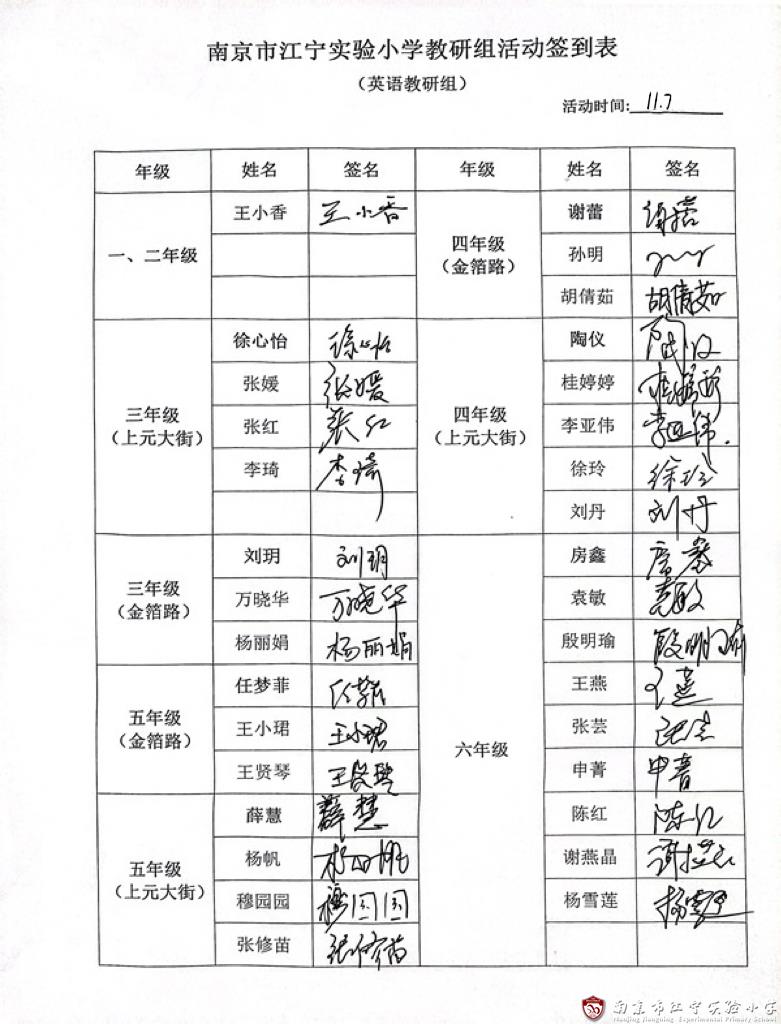 南京市江宁实验小学教研组活动签到表
（英语教研组）
活动时间: 11.7
年级 姓名 签名 年级 姓名 签名
一、二年级
王小香 王小香
四年级
（金箔路）
谢蕾 谢蕾
孙明
胡倩茹 胡倩茹
三年级
（上元大街）
徐心怡 徐心怡
张媛 张媛
张红 张红
李琦 李琦
四年级
（上元大街）
陶仪 陶仪
桂婷婷 桂婷婷
李亚伟 李亚伟
徐玲 徐玲
刘丹 刘丹
三年级
（金箔路）
刘玥 刘玥
万晓华 万晓华
杨丽娟 杨丽娟
五年级
（金箔路）
任梦菲
王小珺 王小珺
王贤琴 王贤琴
五年级
（上元大街）
薛慧 薛慧
杨帆
穆园园 穆园园
张修苗 张修苗
六年级
房鑫 房鑫
袁敏 袁敏
殷明瑜 殷明瑜
王燕 王燕
张芸 张芸
申菁 申菁
陈红 陈红
谢燕晶
杨雪莲 杨雪莲
南京市江宁实验小学
Nanjing Jiangning Experimental Primary School